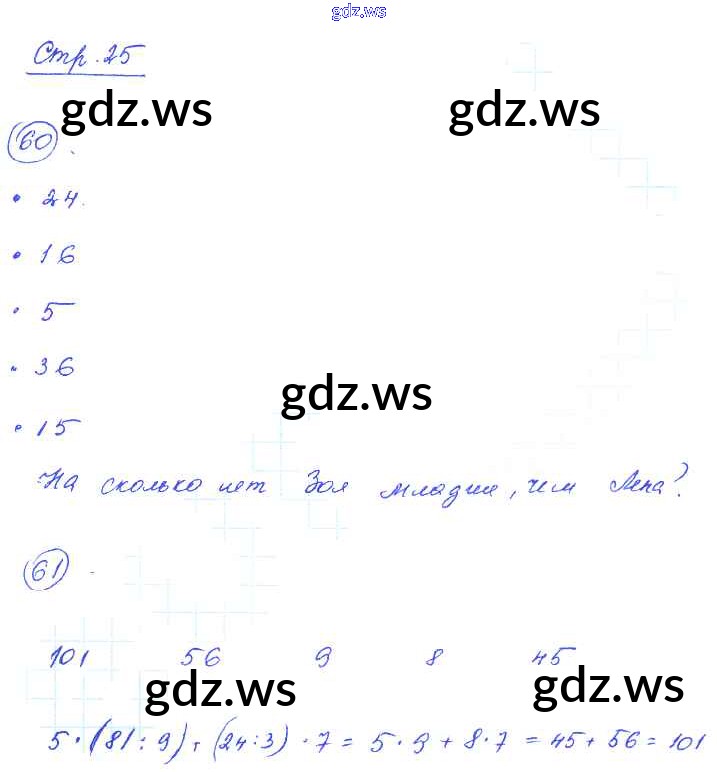 gdz.ws
Стр. 25
gdz.ws gdz.ws
60.
• 24.
• 16
• 5
• 36
gdz.ws
• 15
На сколько лет Зоя младше, чем Лена?
61.
101 56 9 8 45
gdz.ws gdz.ws
5·(81:9)+(24:3)·7=5·9+8·7=45+56=101